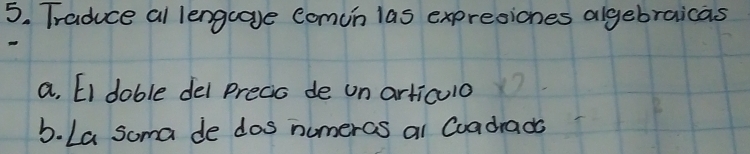 5. Traduce al lenguaje común las expresiones algebraicas
a. El doble del precio de un articulo
b. La suma de dos numeros al cuadrado